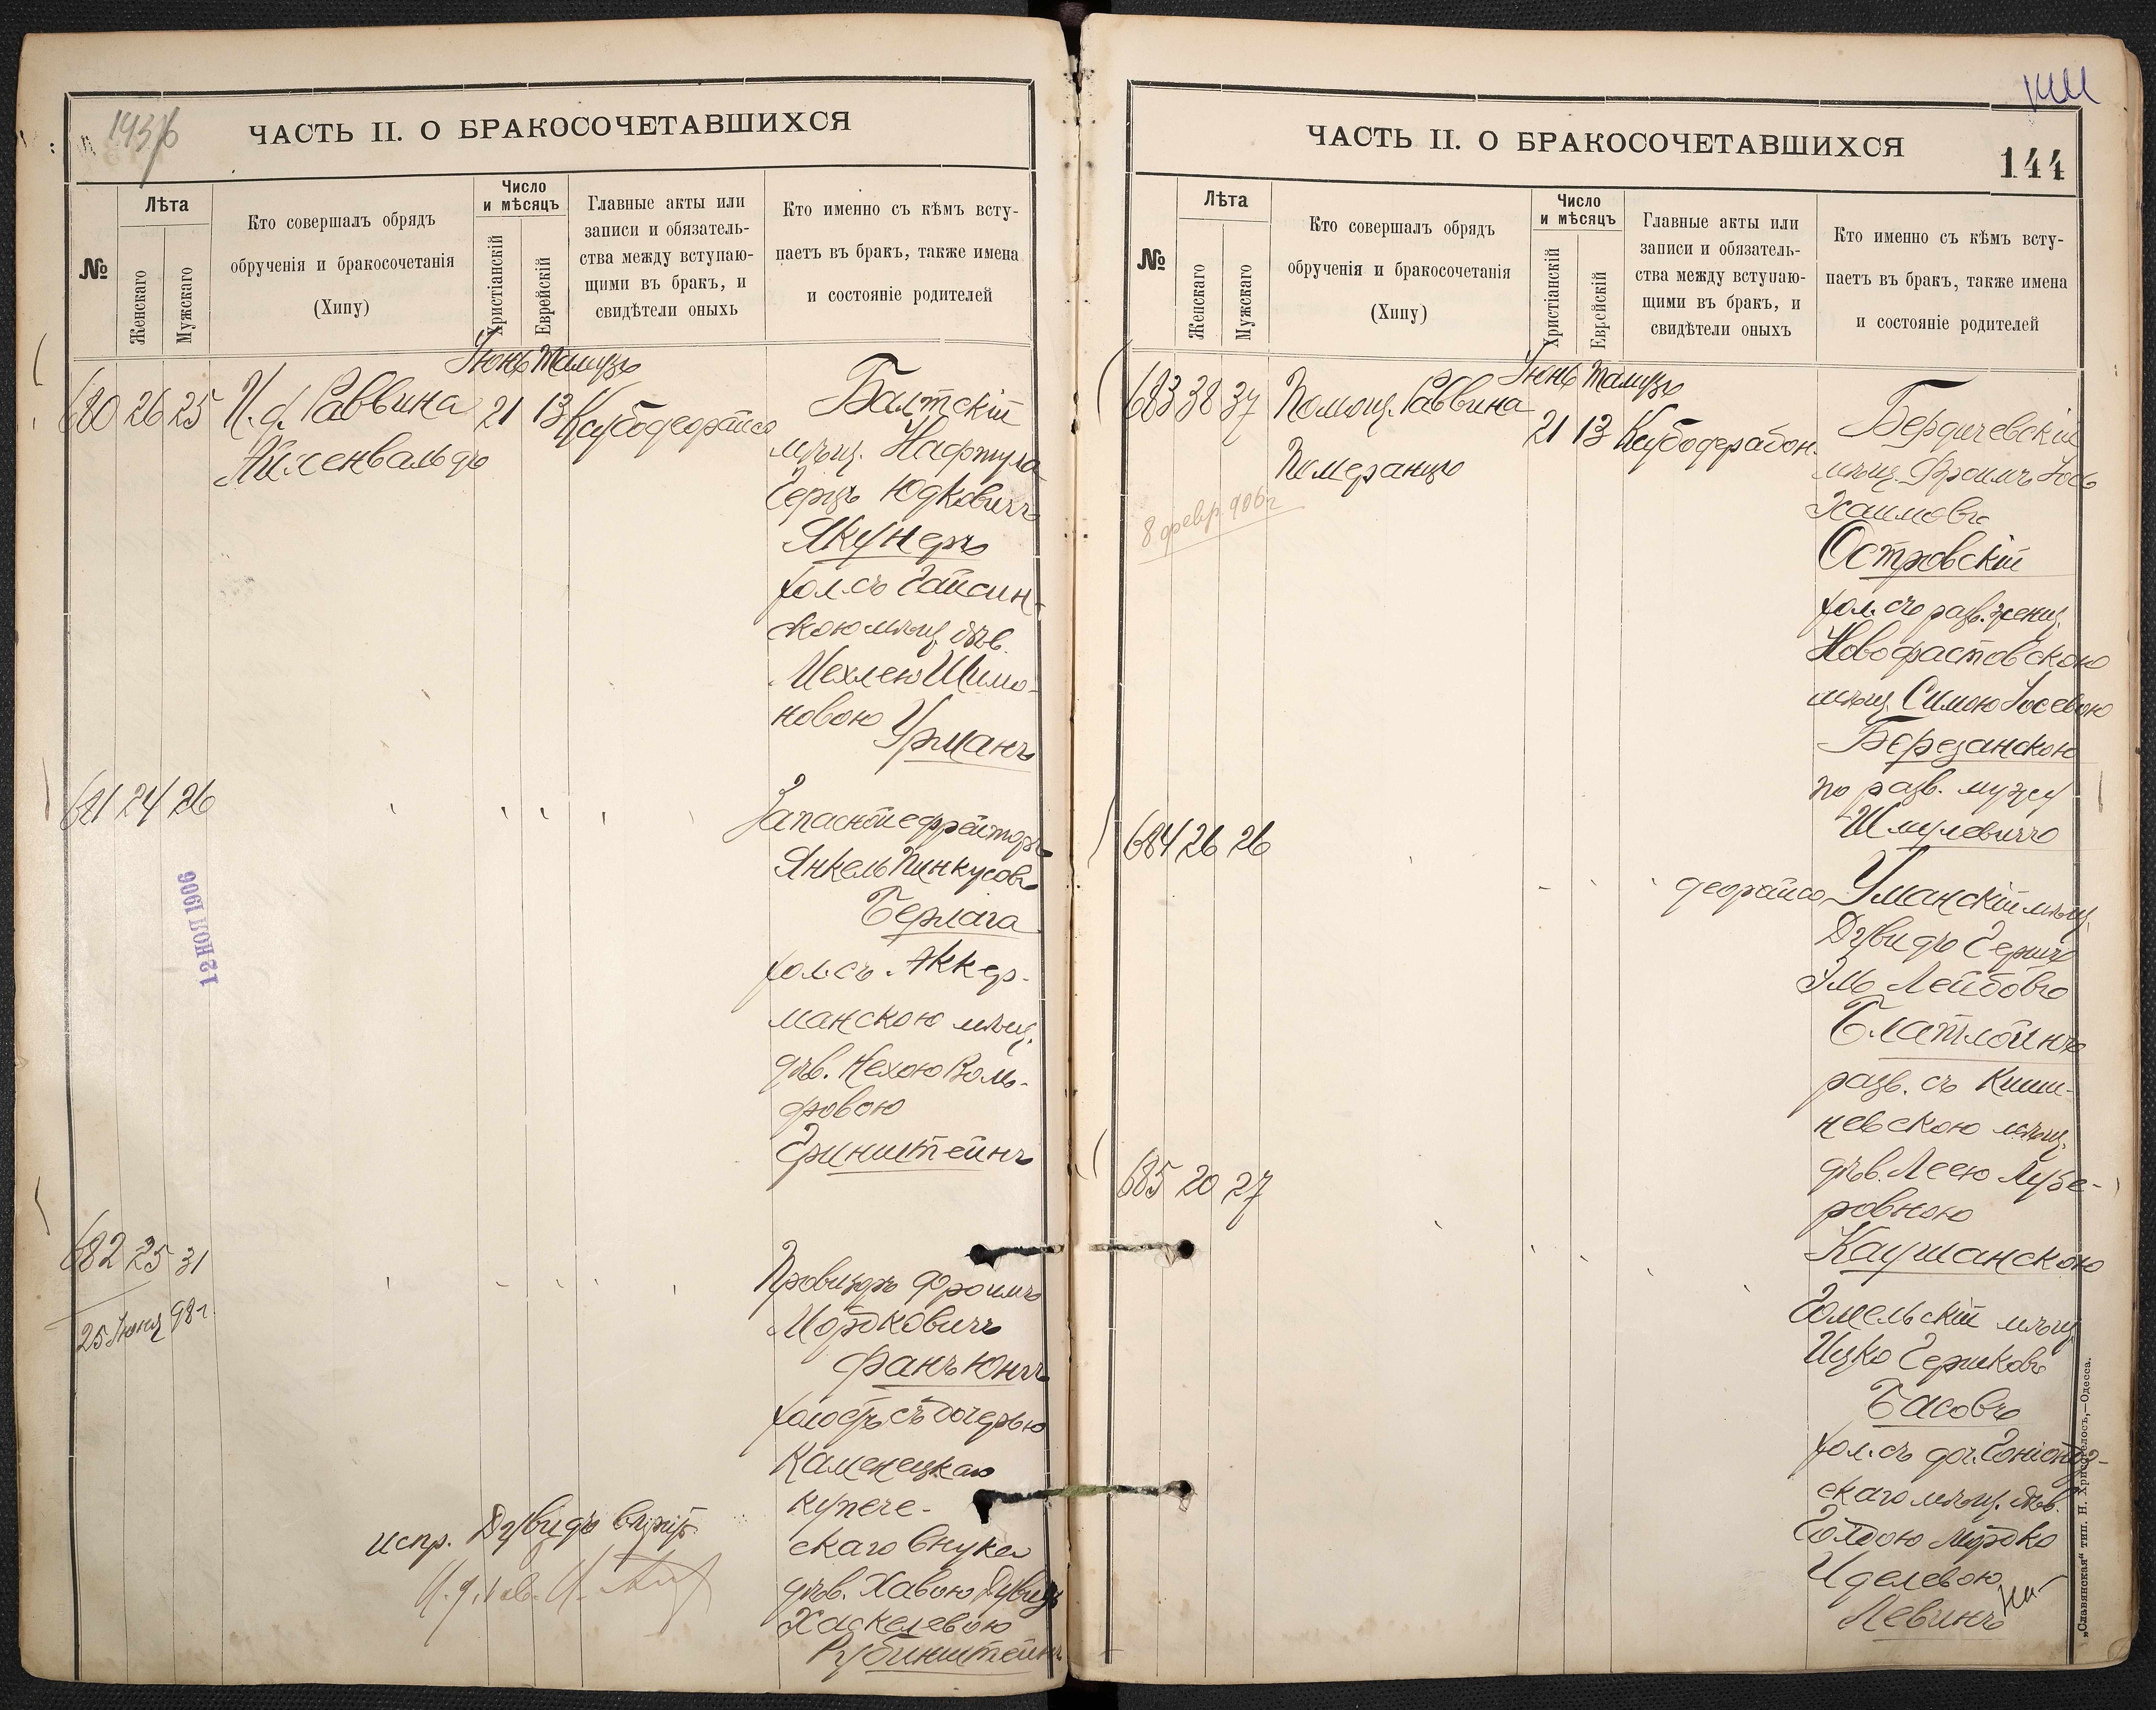 ЧАСТЬ II. О БРАКОСОЧЕТАВШИХСЯ
№
Лѣта
Женскаго
Мужскаго
Кто совершалъ обрядъ
обрученія и бракосочетанія
(Хипу)
Число
и мѣсяцъ
Христіанскій
Еврейскій
Главные акты или
записи и обязатель-
ства между вступаю-
щими въ бракъ, и
свидѣтели оныхъ
Кто именно съ кѣмъ всту-
паетъ въ бракъ, также имена
и состояніе родителей
Іюнь Тамузъ
680 26 25 И. д. Раввина 21 13
Балтскій
мѣщ. Нафтула
Герцъ Юдковичъ
Якунеръ
хол. съ Гайсин-
скою мѣщ. дѣв.
Шимо-
новою Урманъ
681 24 26
Запасной ефрейторъ
Янкель Пинкусовъ
Берлага
хол. съ Аккер-
манскою мѣщ.
дѣв. Нехою Воль-
фовою
Гринштейнъ
12 НОЯ 1906
682 25 31
25 Іюня 98 г.
Провизоръ Фроимъ
Мордковичъ
Фанъ Юнгъ
холост. съ дочерью
Каменецкаго
купече-
скаго внука
дѣв. Хавою Дувидъ
Хаскелевою
Рубинштейнъ
испр. Дувидъ
ЧАСТЬ II. О БРАКОСОЧЕТАВШИХСЯ
144
№
Лѣта
Женскаго
Мужскаго
Кто совершалъ обрядъ
обрученія и бракосочетанія
(Хипу)
Число
и мѣсяцъ
Христіанскій
Еврейскій
Главные акты или
записи и обязатель-
ства между вступаю-
щими въ бракъ, и
свидѣтели оныхъ
Кто именно съ кѣмъ всту-
паетъ въ бракъ, также имена
и состояніе родителей
Іюнь Тамузъ
683 38 37 Помощ. Раввина 21 13
Померанцъ
8 февр. 906 г.
Бердичевскій
мѣщ. Фроимъ Іось
Хаимовъ
Островскій
хол. съ разв. женщ.
Новофастовскою
мѣщ. Симою Іосевою
Березанскою
по разв. мужу
Шмулевичъ
684 26 26
Уманскій мѣщ.
Дувидъ Гершъ
Эль Лейбовъ
разв. съ Киши-
невскою мѣщ.
дѣв. Леею Лузе-
ровною
Каушанскою
685 20 27
Гомельскій мѣщ.
Ицко Гершковъ
Басовъ
хол. съ доч. Гоніондз-
скаго мѣщ. дѣв.
Голдою Мордко
Иделевою
Левинъ
„Славянская“ тип. Н. Хрисогелосъ,—Одесса.